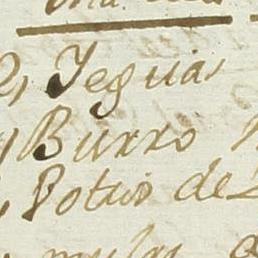 2, Yeguas
Burro
Potros de 2
mulas